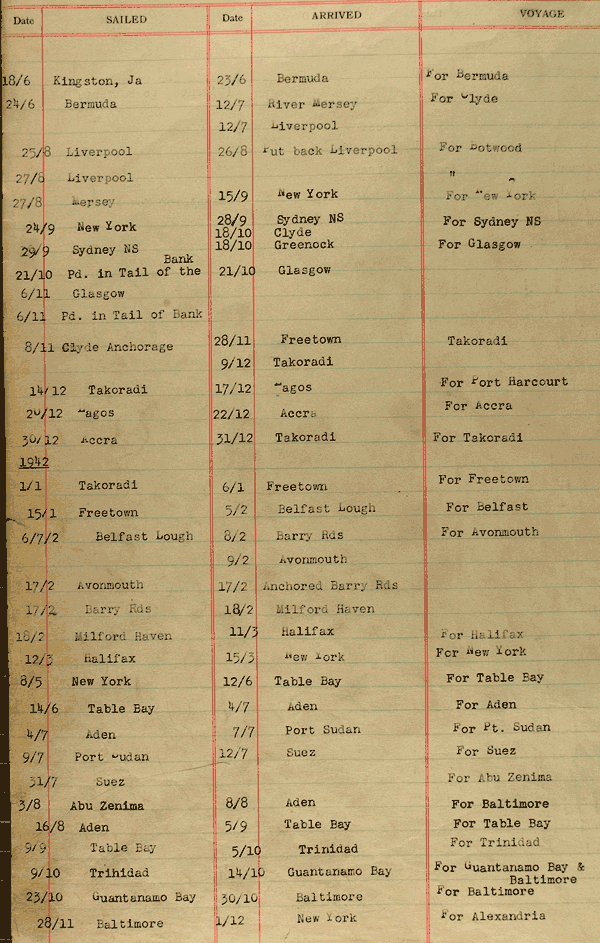 Date SAILED Date ARRIVED VOYAGE
18/6 Kingston, Ja 23/6 Bermuda For Bermuda
24/6 Bermuda 12/7 River Mersey For Clyde
12/7 Liverpool
25/8 Liverpool 26/8 Put back Liverpool For Botwood
27/8 Liverpool "
27/8 Mersey 15/9 New York For New York
24/9 New York 28/9 Sydney NS For Sydney NS
18/10 Clyde
29/9 Sydney NS 18/10 Greenock For Glasgow
Bank
21/10 Pd. in Tail of the 21/10 Glasgow
6/11 Glasgow
6/11 Pd. in Tail of Bank
8/11 Clyde Anchorage 28/11 Freetown Takoradi
9/12 Takoradi
14/12 Takoradi 17/12 Lagos For Port Harcourt
20/12 Lagos 22/12 Accra For Accra
30/12 Accra 31/12 Takoradi For Takoradi
1942
1/1 Takoradi 6/1 Freetown For Freetown
15/1 Freetown 5/2 Belfast Lough For Belfast
6/7/2 Belfast Lough 8/2 Barry Rds For Avonmouth
9/2 Avonmouth
17/2 Avonmouth 17/2 Anchored Barry Rds
17/2 Barry Rds 18/2 Milford Haven
18/2 Milford Haven 11/3 Halifax For Halifax
12/3 Halifax 15/3 New York For New York
8/5 New York 12/6 Table Bay For Table Bay
14/6 Table Bay 4/7 Aden For Aden
4/7 Aden 7/7 Port Sudan For Pt. Sudan
9/7 Port Sudan 12/7 Suez For Suez
31/7 Suez For Abu Zenima
3/8 Abu Zenima 8/8 Aden For Baltimore
16/8 Aden 5/9 Table Bay For Table Bay
9/9 Table Bay 5/10 Trinidad For Trinidad
9/10 Trinidad 14/10 Guantanamo Bay For Guantanamo Bay &
Baltimore
23/10 Guantanamo Bay 30/10 Baltimore For Baltimore
28/11 Baltimore 1/12 New York For Alexandria